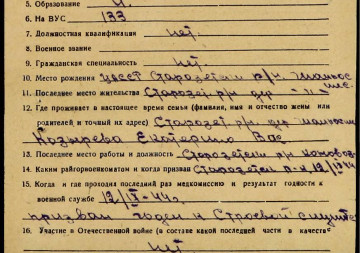 5. Образование 4.
6. На ВУС 133
7. Должностная квалификация нет
8. Военное звание
9. Гражданская специальность нет
10. Место рождения Старозетски р/н.
11. Последнее место жительства Старозет р/н дер - " -
12. Где проживает в настоящее время семья (фамилия, имя и отчество жены или
родителей и точный их адрес) Старозет р/н. дер.
Козырева Екатерина Вас
13. Последнее место работы и должность Старозетски р/н
14. Каким райгорвоенкоматом и когда призван Старозетски р-н 12/IX 44
15. Когда и где проходил последний раз медкомиссию и результат годности к
военной службе 12/IX-44 г.
призван годен к строевой службе
16. Участие в Отечественной войне (в составе какой последней части в качестве
нет